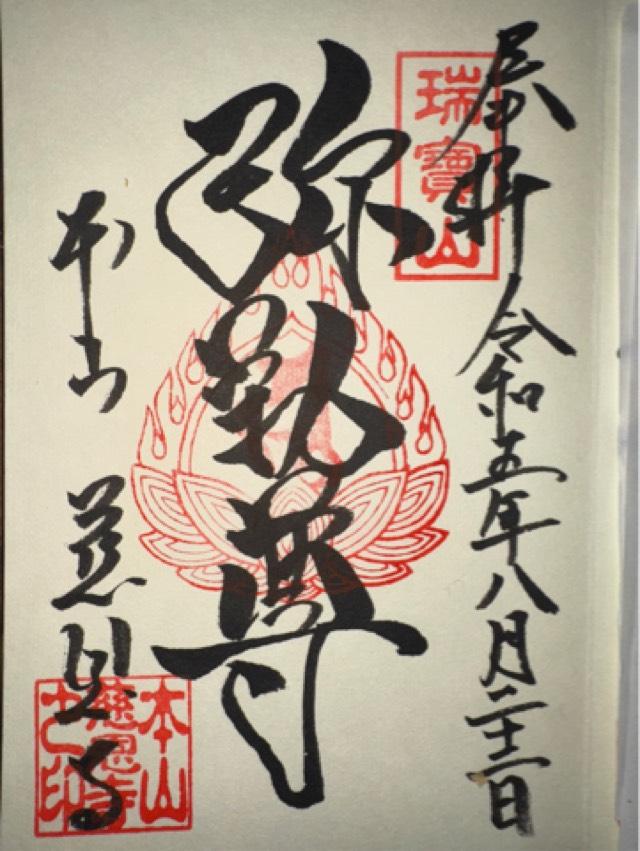 奉拝 令和五年八月二十二日
瑞寶山
弥勒尊
本山 慈恩寺
本山
慈恩寺
之印